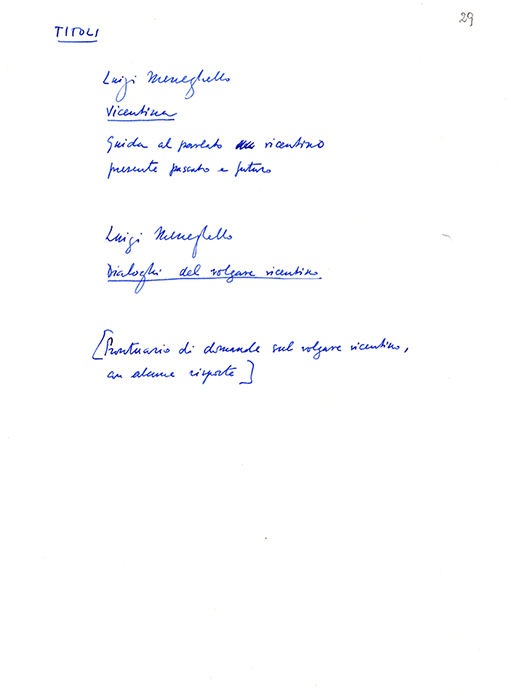 29
TITOLI
Luigi Meneghello
Vicentina
Guida al parlato vicentino
presente passato e futuro
Luigi Meneghello
Dialoghi del volgare vicentino
[Prontuario di domande sul volgare vicentino,
con alcune risposte]